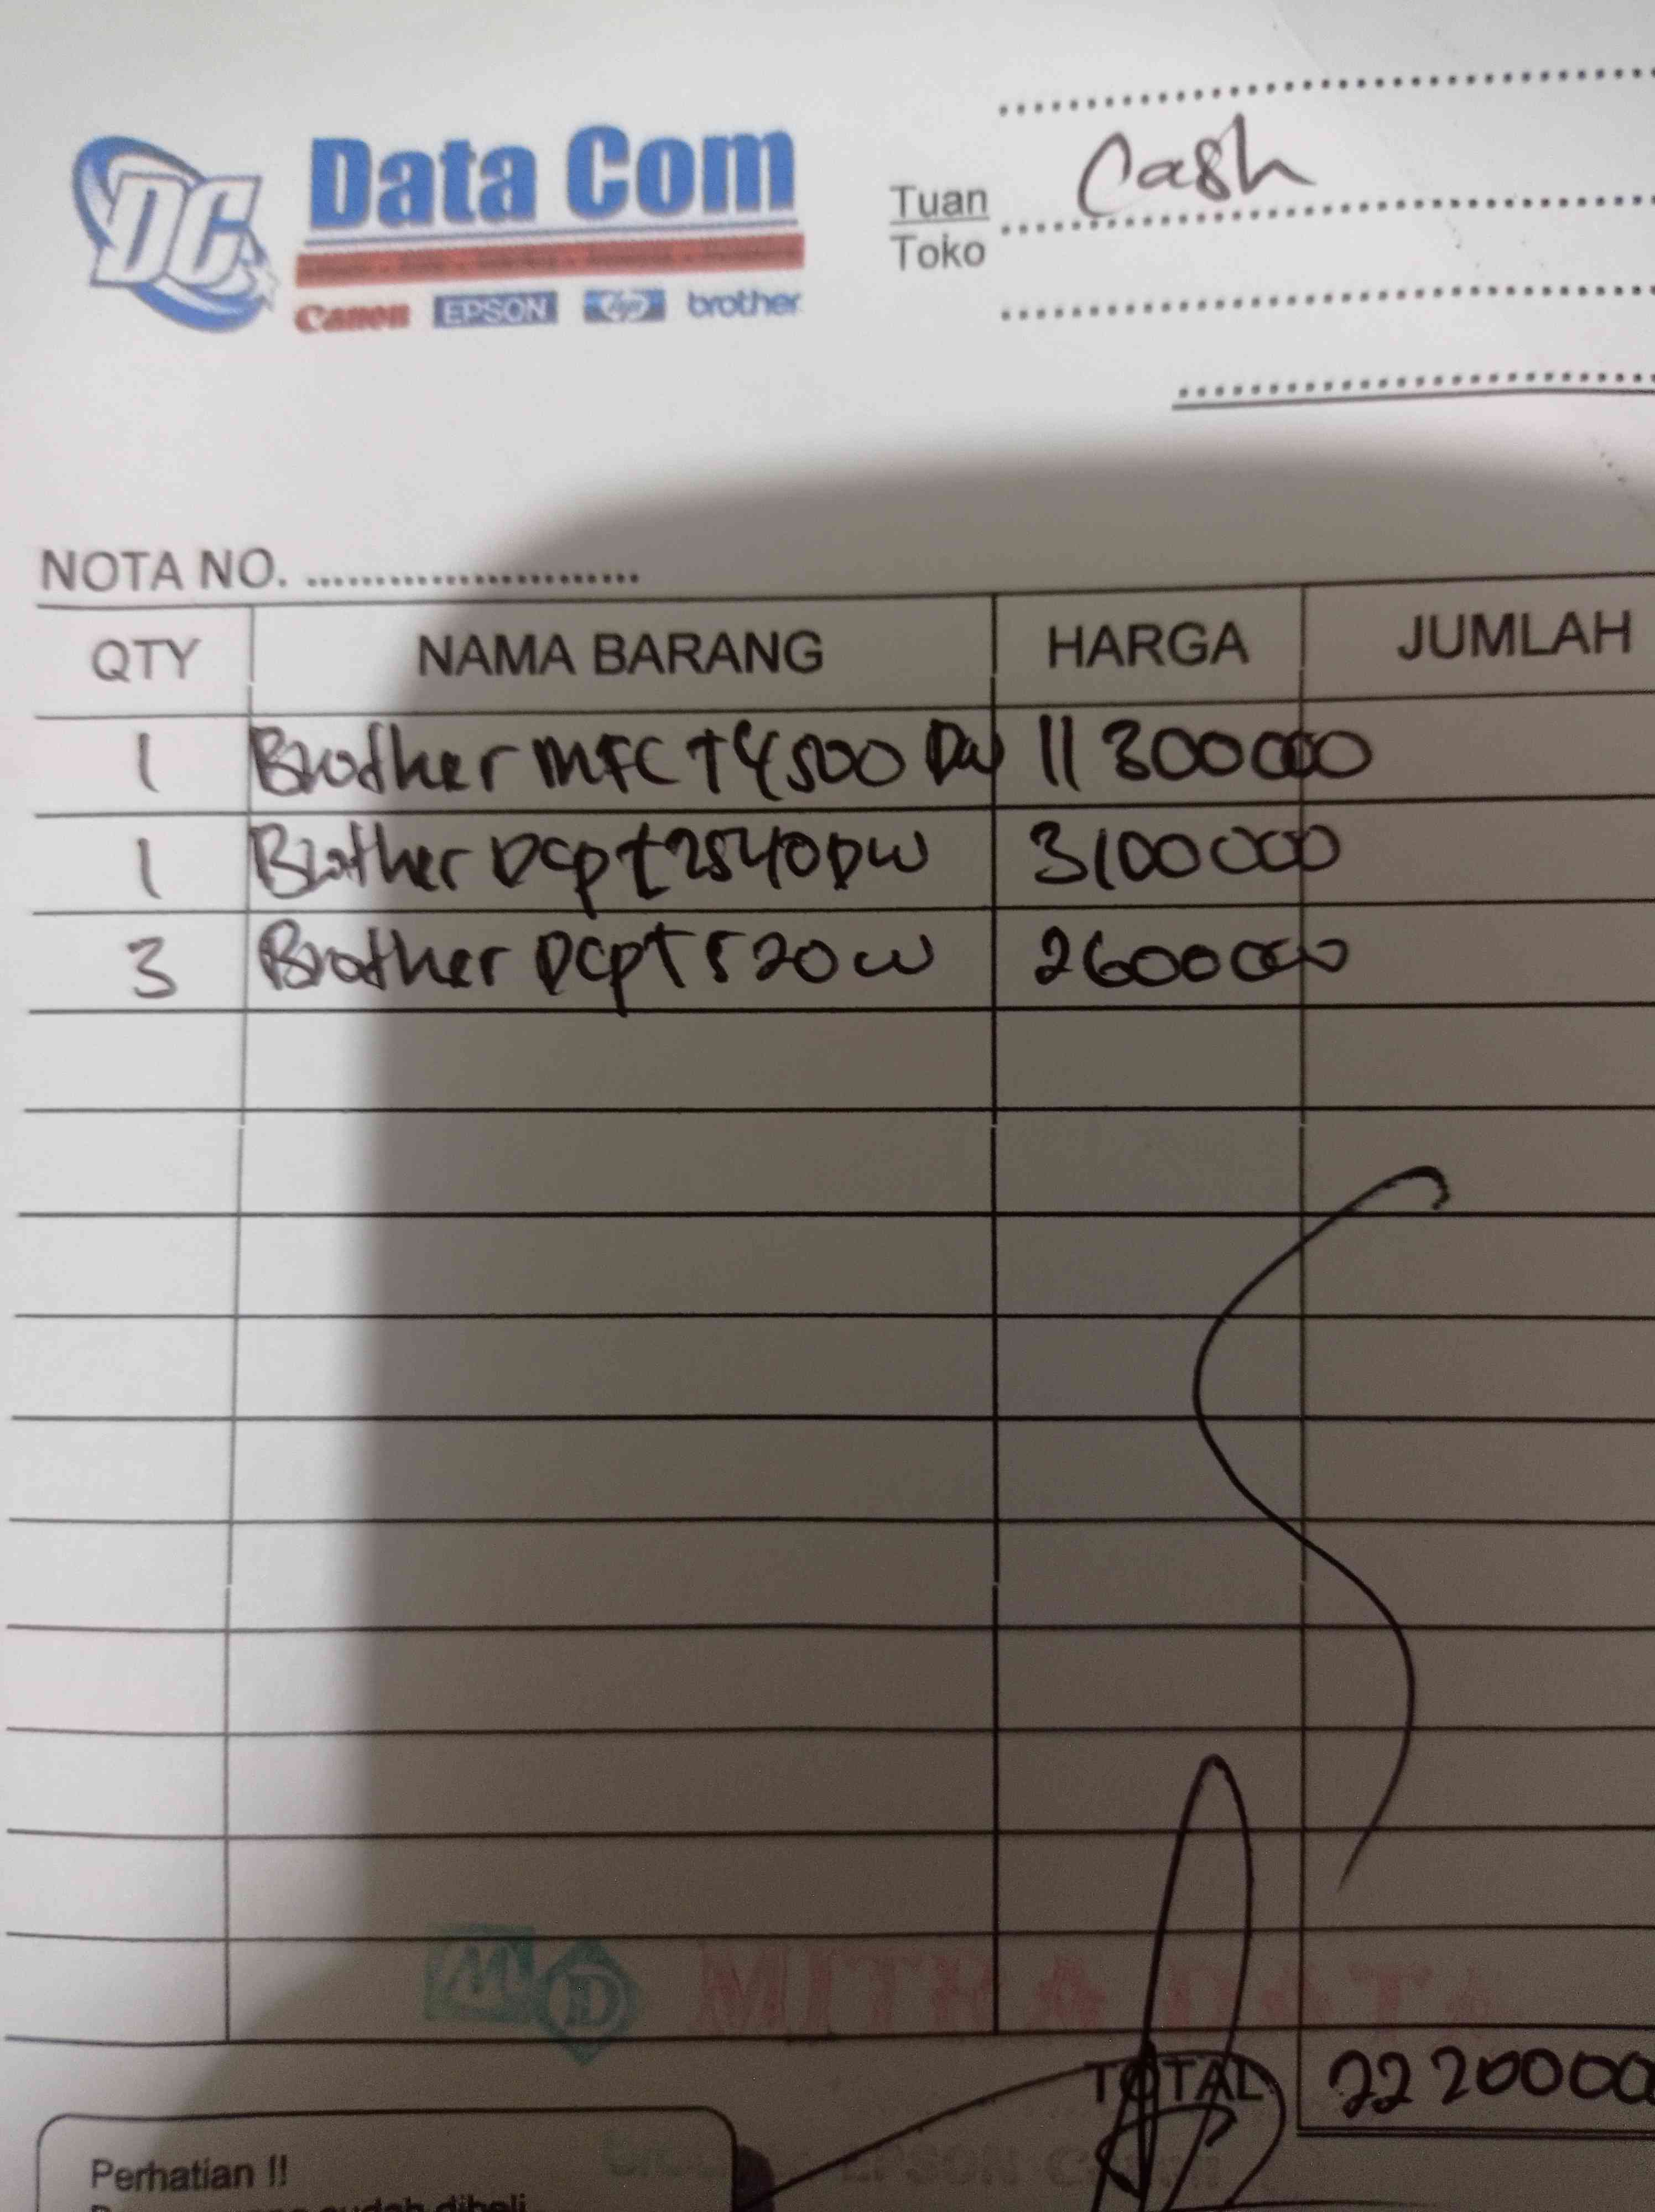 DC Data Com
Canon EPSON hp brother
Tuan Cash
Toko
NOTA NO. ........................
QTY NAMA BARANG HARGA JUMLAH
1 Brother MFC T4500 DW 11300000
1 Brother DCP L2540DW 3100000
3 Brother DCP T520W 2600000
TOTAL 2220000
Perhatian !!
sudah dibeli